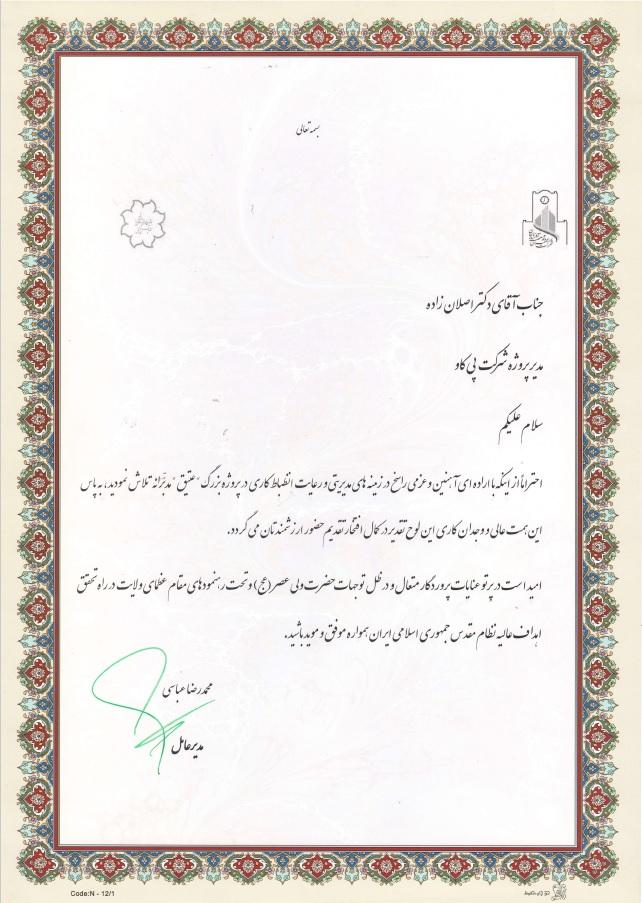 بسمه تعالی
جناب آقای دکتر اصلان زاده
مدیر پروژه شرکت پی کاو
سلام علیکم
احتراماً از اینکه با اراده ای آهنین و عزمی راسخ در زمینه های مدیریتی و رعایت انظباط کاری در پروژه بزرگ "عتیق" مدبّرانه تلاش نمودید، به پاس
این همت عالی و وجدان کاری این لوح تقدیر در کمال افتخار تقدیم حضور ارزشمندتان می گردد.
امید است در پرتو عنایات پروردگار متعال و در ظل توجهات حضرت ولی عصر (عج) و تحت رهنمودهای مقام عظمای ولایت در راه تحقق
اهداف عالیه نظام مقدس جمهوری اسلامی ایران همواره موفق و موید باشید.
محمدرضا عباسی
مدیرعامل
Code:N - 12/1